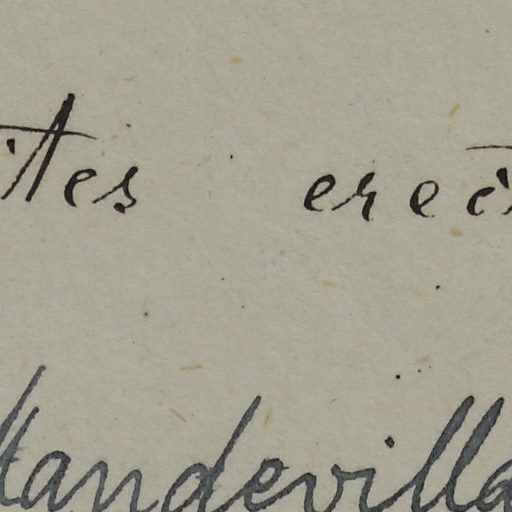 ites erec
Mandevilla